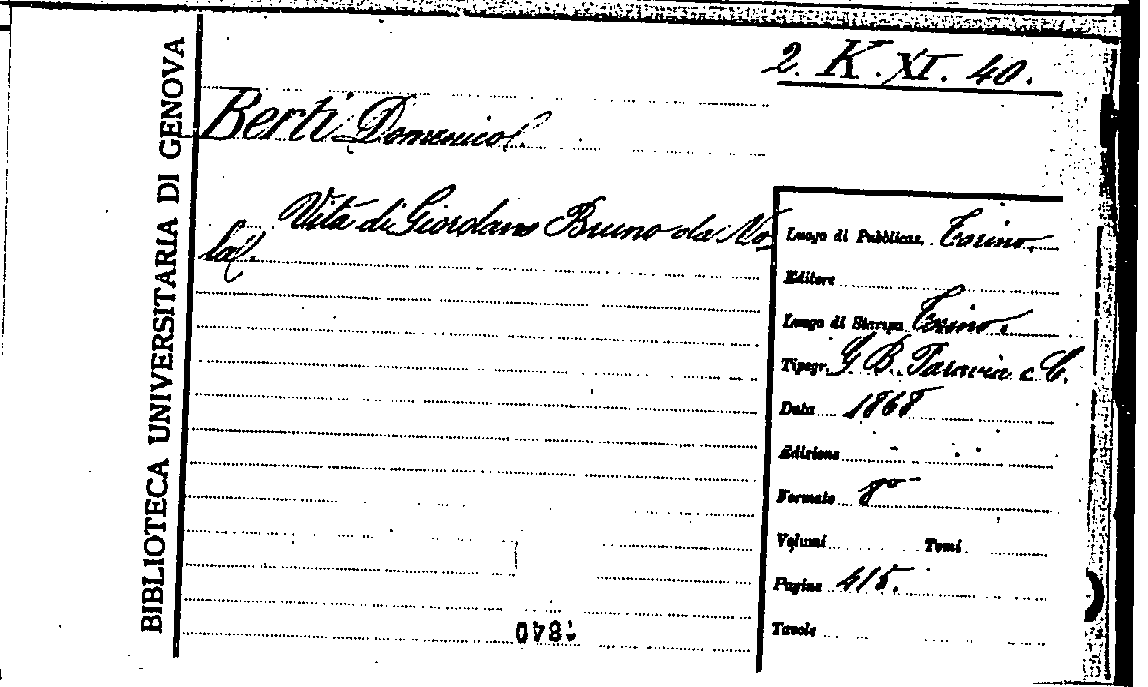 BIBLIOTECA UNIVERSITARIA DI GENOVA
2. K. XI. 40.
Berti Domenico
Vita di Giordano Bruno da No-
la.
Luogo di Pubblicaz. Torino.
Editore
Luogo di Stampa Torino.
Tipogr. G. B. Paravia e C.
Data 1868
Edizione
Formato 8°
Volumi Tomi
Pagine 415.
Tavole
1840